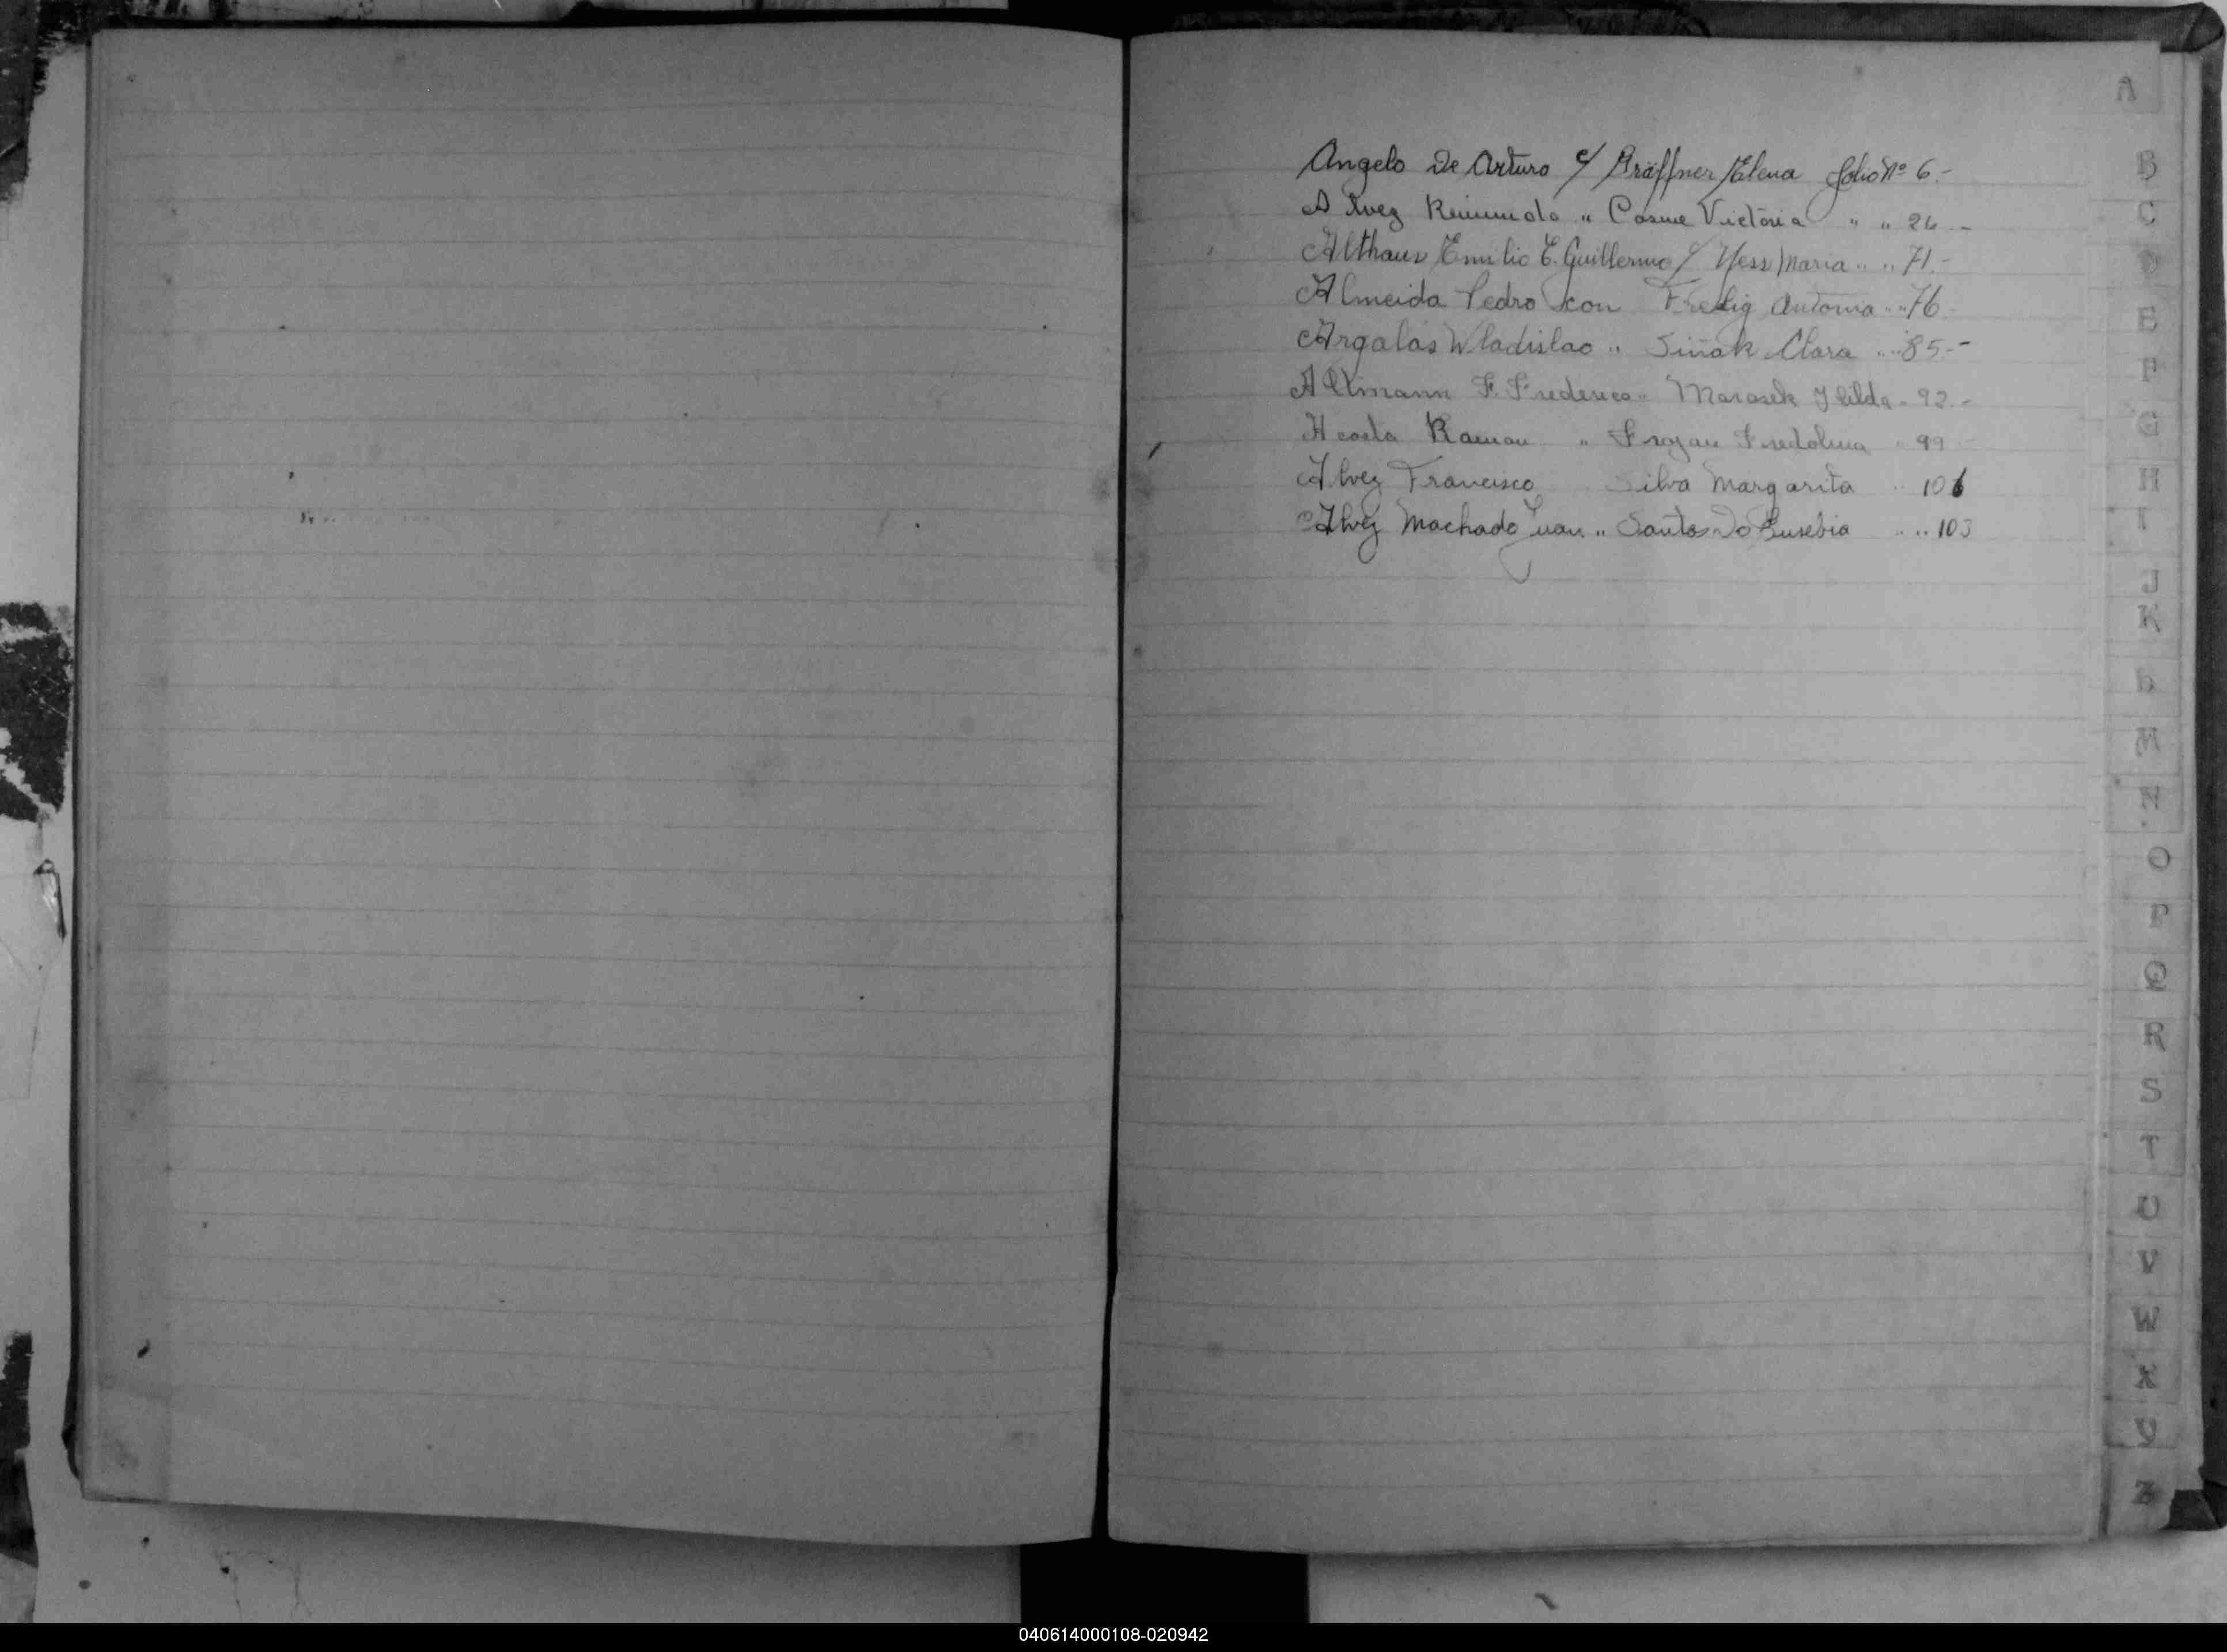 A
Angelo De Arturo c/ Präffner Elena folio Nº 6.-
Alvez Reimundo " Cosme Victoria " " 26.-
Althaus Emilio E. Guillermo c/ Hess Maria " " 71.-
Almeida Pedro con Fredig Antonia " " 76-
Argalas Wladislao " Siñak Clara " " 85.-
Altmann F. Frederico " Marosek Hilda " 92.-
Acosta Ramon " Trojan Fredolina " 99-
Alvez Francisco Silva Margarita " 106
Alvez Machado Juan " Santos Do Eusebia " " 103
B
C
D
E
F
G
H
I
J
K
M
N
O
P
Q
R
S
T
U
V
W
X
Y
Z
040614000108-020942